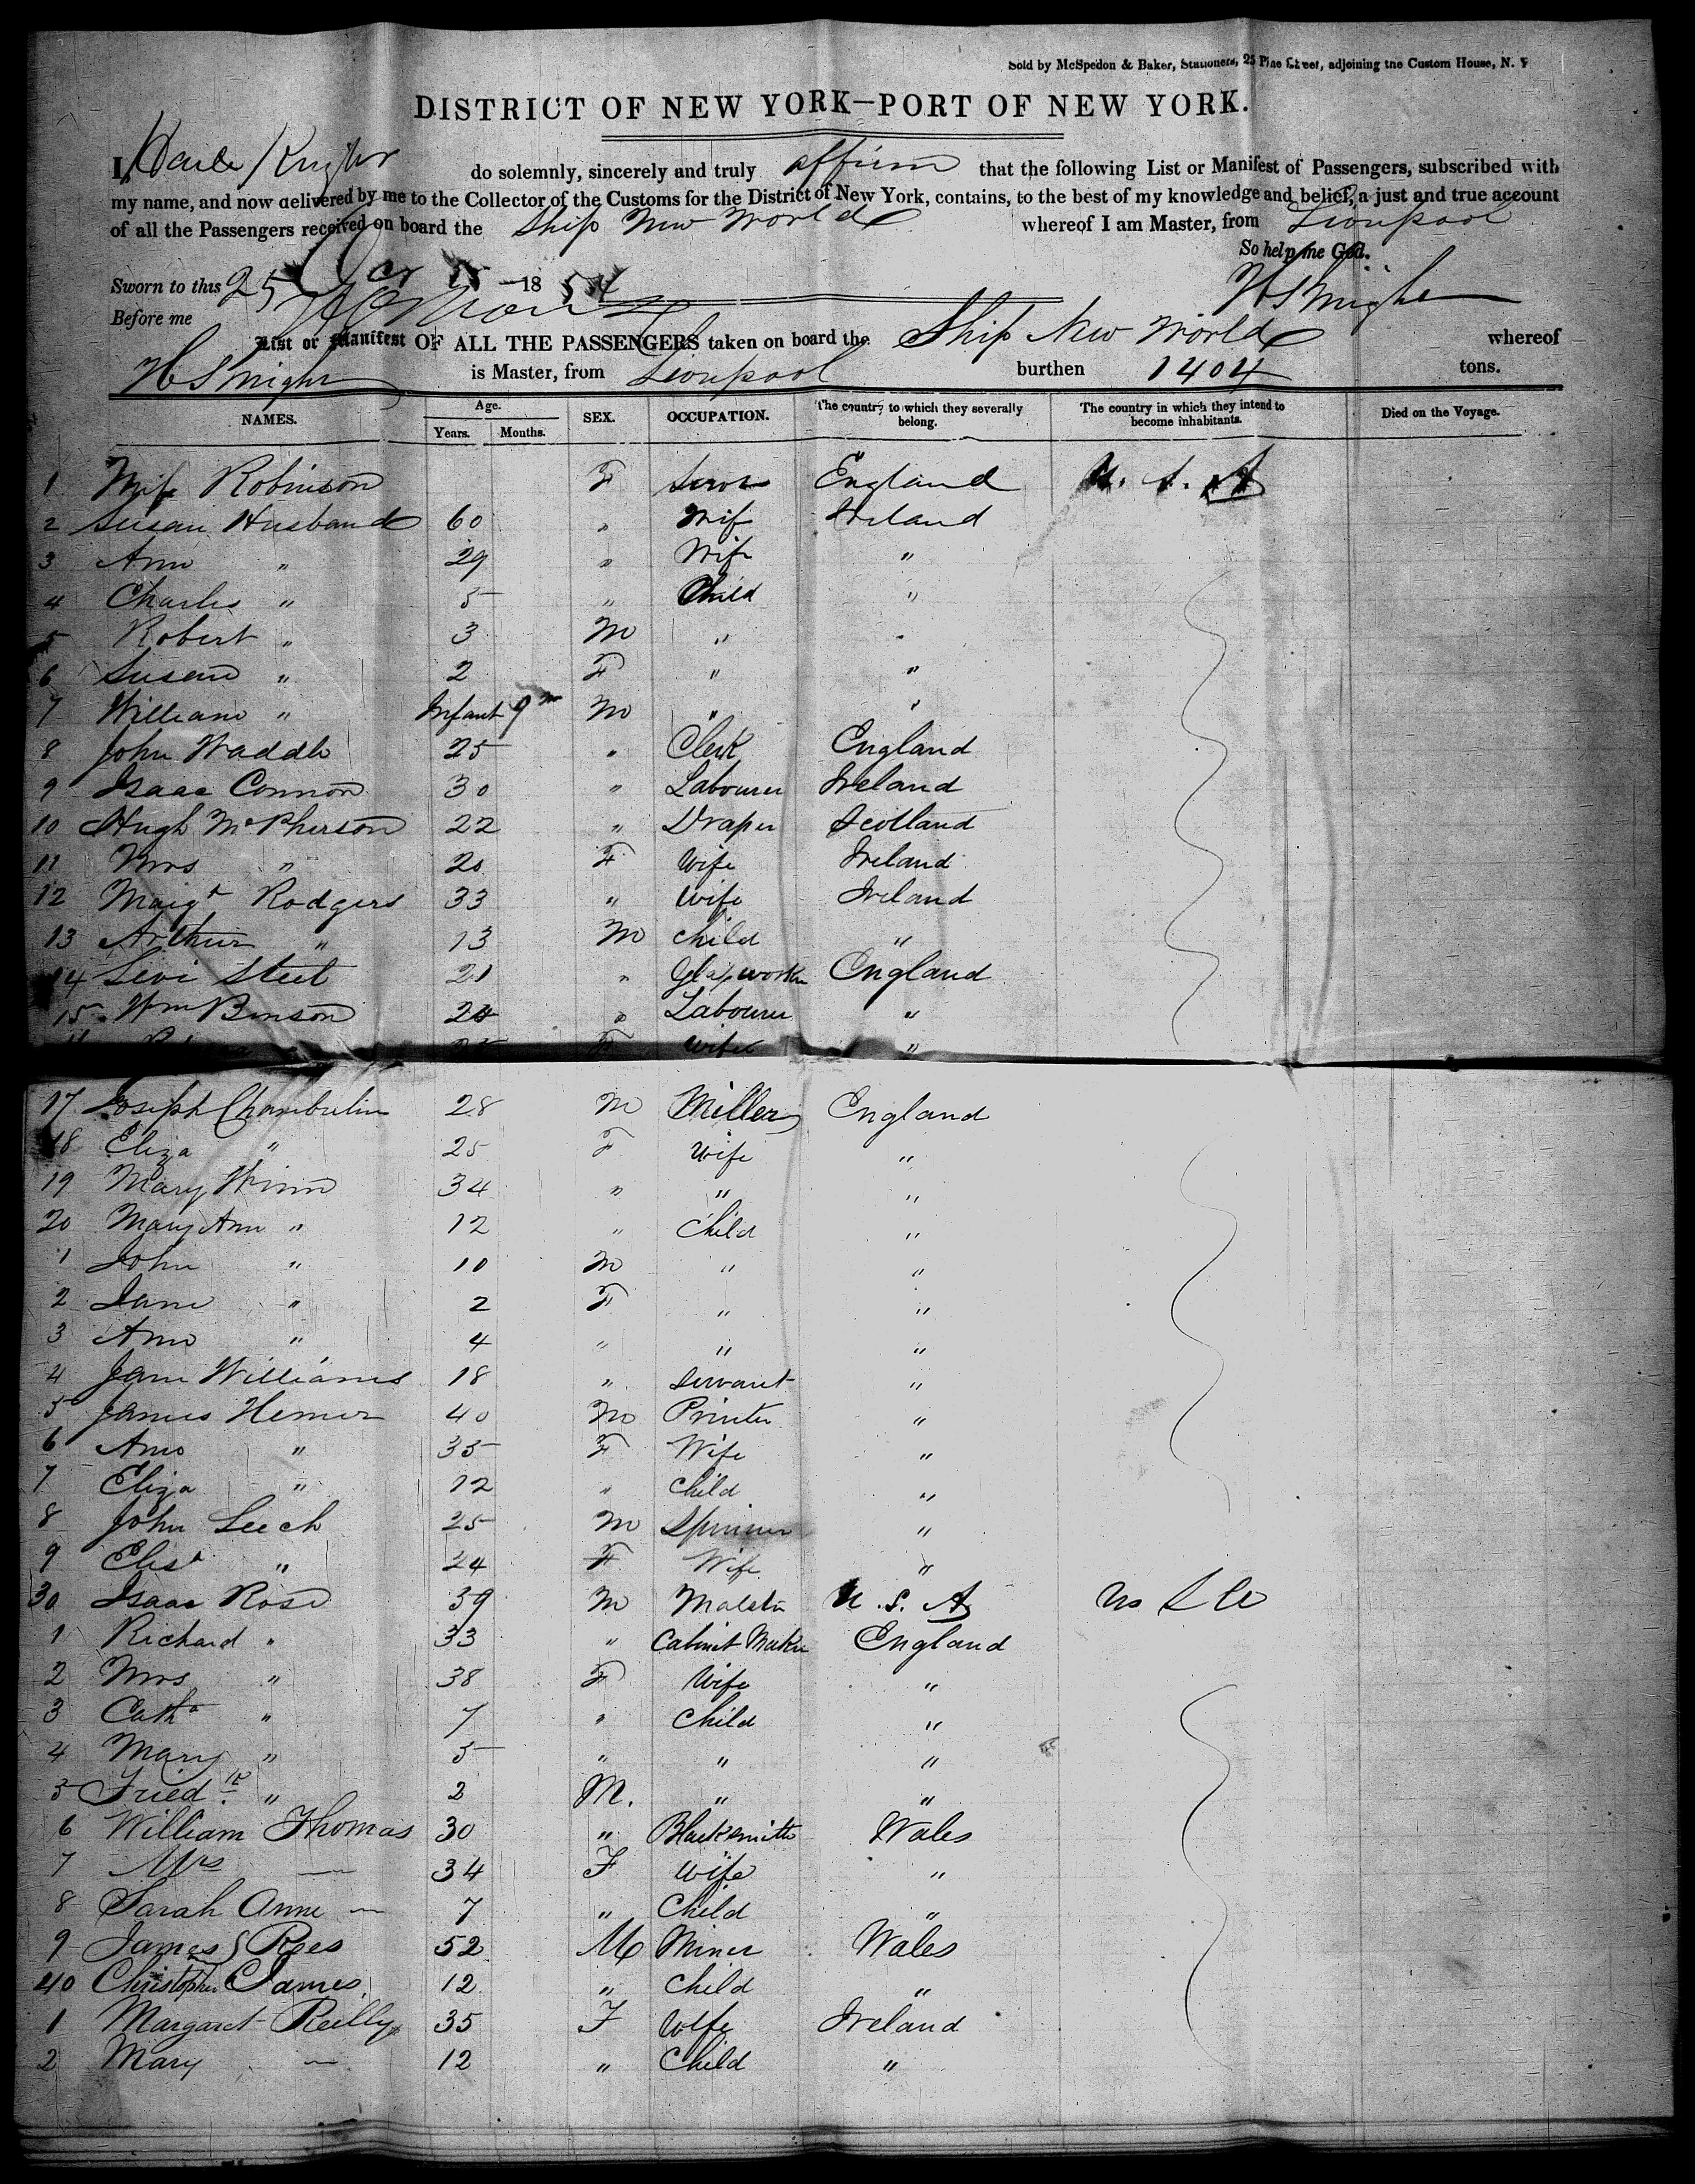 Sold by McSpedon & Baker, Stationers, 25 Pine Street, adjoining the Custom House, N. Y
DISTRICT OF NEW YORK—PORT OF NEW YORK.
I, Knight do solemnly, sincerely and truly affirm that the following List or Manifest of Passengers, subscribed with
my name, and now delivered by me to the Collector of the Customs for the District of New York, contains, to the best of my knowledge and belief, a just and true account
of all the Passengers received on board the Ship New World whereof I am Master, from Liverpool
So help me God.
Sworn to this 25 18 54
Before me
List or Manifest OF ALL THE PASSENGERS taken on board the Ship New World whereof
is Master, from Liverpool burthen 1404 tons.
NAMES. Age. Years. Months. SEX. OCCUPATION. The country to which they severally belong. The country in which they intend to become inhabitants. Died on the Voyage.
1 Robinson F England U. S. A
2 Susan Husband 60 " Wife Ireland
3 Ann " 29 " Wife "
4 Charles " 5 " Child "
5 Robert " 3 M " "
6 Susan " 2 F " "
7 William " Infant 9 m M " "
8 John Waddle 25 " Clerk England
9 Isaac Connon 30 " Labourer Ireland
10 Hugh McPherson 22 " Draper Scotland
11 Mrs " 20 F Wife Ireland
12 Margt Rodgers 33 " Wife Ireland
13 Arthur " 13 M Child "
14 Levi Steet 21 " Glassworker England
15 Wm Binson " Labourer "
F Wife "
17 Joseph Chamberlin 28 M Miller England
18 Eliza " 25 F Wife "
19 Mary Winn 34 " " "
20 Mary Ann " 12 " Child "
1 John " 10 M " "
2 Jane " 2 F " "
3 Ann " 4 " " "
4 Jane Williams 18 " Servant "
5 James Hemer 40 M Printer "
6 Ann " 35 F Wife "
7 Eliza " 12 " Child "
8 John Leech 25 M Spinner "
9 Elisa " 24 F Wife "
30 Isaac Rose 39 M Malster U. S. A
1 Richard " 33 " Cabinet Maker England
2 Mrs " 38 F Wife "
3 Catha " 7 " Child "
4 Mary " 5 " " "
5 Fried.k " 2 M. " "
6 William Thomas 30 " Blacksmith Wales
7 Mrs — 34 F Wife "
8 Sarah Anne — 7 " Child "
9 James Rees 52 M Miner Wales
40 Christopher James 12 " Child "
1 Margaret Reilly 35 F Wife Ireland
2 Mary — 12 " Child "